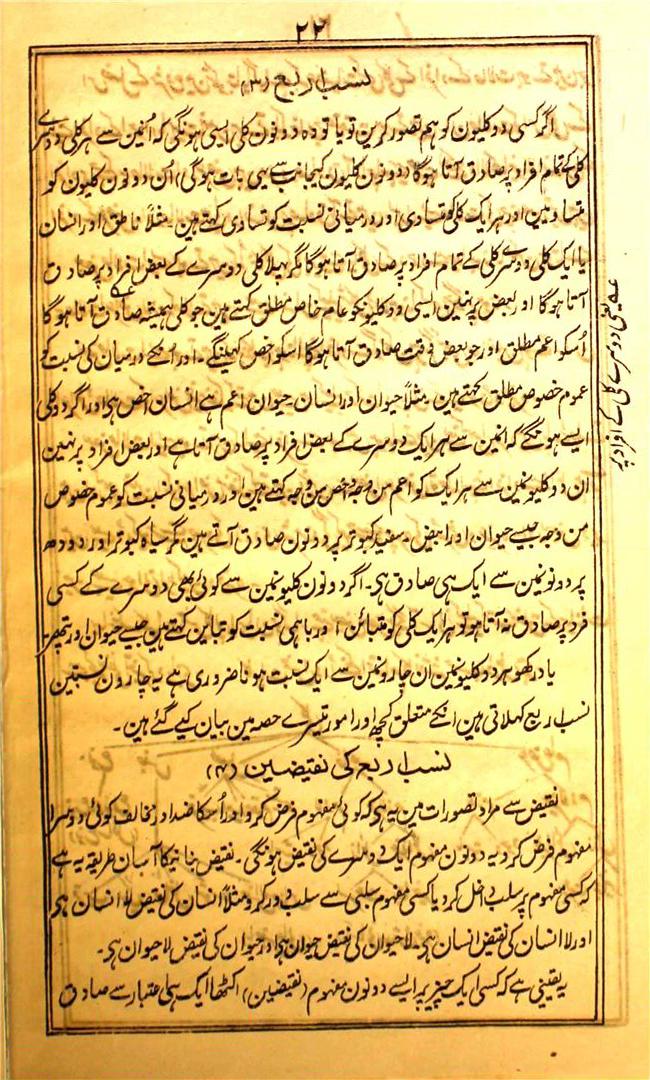 ۲۲
نسب اربع (۳)
اگر کسی دو کلیون کو ہم تصور کرین تو یا تو وہ دونون کلی ایسی ہونگی کہ اُنمین سے ہر کلی دوسرے
کلی کے تمام افراد پر صادق آتا ہوگا (دونون کلیون کیجانب سے یہی بات ہوگی) اُن دونون کلیون کو
متساویین اور ہر ایک کلی کو متساوی اور درمیانی نسبت کو تساوی کہتے ہین۔ مثلاً ناطق اور انسان
یا ایک کلی دوسرے کلی کے تمام افراد پر صادق آتا ہوگا مگر پہلا کلی دوسرے کے بعض افراد پر صادق
آتا ہوگا اور بعض پر نہین ایسی دو کلیونکو عام خاص مطلق کہتے ہین جو کلی ہمیشہ صادق آتا ہوگا
اُسکو اعم مطلق اور جو بعض وقت صادق آتا ہوگا اسکو اخص کہینگے۔ اور اُنکے درمیان کی نسبت کو
عموم خصوص مطلق کہتے ہین مثلاً حیوان اور انسان۔ حیوان اعم ہے انسان اخص ہی اور اگر دو کلی
ایسے ہونگے کہ انمین سے ہر ایک دوسرے کے بعض افراد پر صادق آتا ہے اور بعض افراد پر نہین
ان دو کلیونمین سے ہر ایک کو اعم من وجہ و اخص من وجہ کہتے ہین اور درمیانی نسبت کو عموم خصوص
من وجہ جیسے حیوان اور ابیض۔ سفید کبوتر پر دونون صادق آتے ہین مگر سیاہ کبوتر اور دودھ
پر دونونمین سے ایک ہی صادق ہی۔ اگر دونون کلیونمین سے کوئی بھی دوسرے کے کسی
فرد پر صادق نہ آتا ہو تو ہر ایک کلی کو متبائن اور باہمی نسبت کو تباین کہتے ہین جیسے حیوان اور پتھر۔
یاد رکھو ہر دو کلیونمین ان چارونمین سے ایک نسبت ہونا ضروری ہے یہ چارون نسبتین
نسب اربع کہلاتی ہین انکے متعلق کچھ اور امور تیسرے حصہ مین بیان کیے گئے ہین۔
نسب اربع کی نقیضین (۴)
نقیض سے مراد تصورات مین یہ ہی کہ کوئی مفہوم فرض کرو اور اُسکا ضد اور مخالف کوئی دوسرا
مفہوم فرض کرو یہ دونون مفہوم ایک دوسرے کی نقیض ہونگی۔ نقیض بنانیکا آسان طریقہ یہ ہے
کہ کسی مفہوم پر سلب داخل کردیا کسی مفہوم سلبی سے سلب دور کرو مثلاً انسان کی نقیض لا انسان ہی
اور لا انسان کی نقیض انسان ہی۔ لا حیوان کی نقیض حیوان ہی اور حیوان کی نقیض لا حیوان ہی۔
یہ یقینی ہے کہ کسی ایک چیز پر ایسے دونون مفہوم (نقیضین) اکٹھا ایک ہی اعتبار سے صادق
عہ یعنی دوسرے کلی کے افراد پر